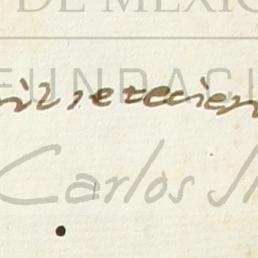 DE MÉXIC
FUNDACI
mil setecien
Carlos Sl